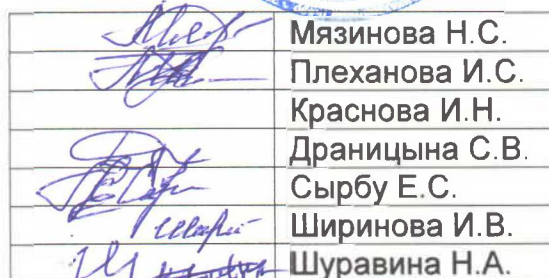 Мязинова Н.С.
Плеханова И.С.
Краснова И.Н.
Драницына С.В.
Сырбу Е.С.
Ширинова И.В.
Шуравина Н.А.